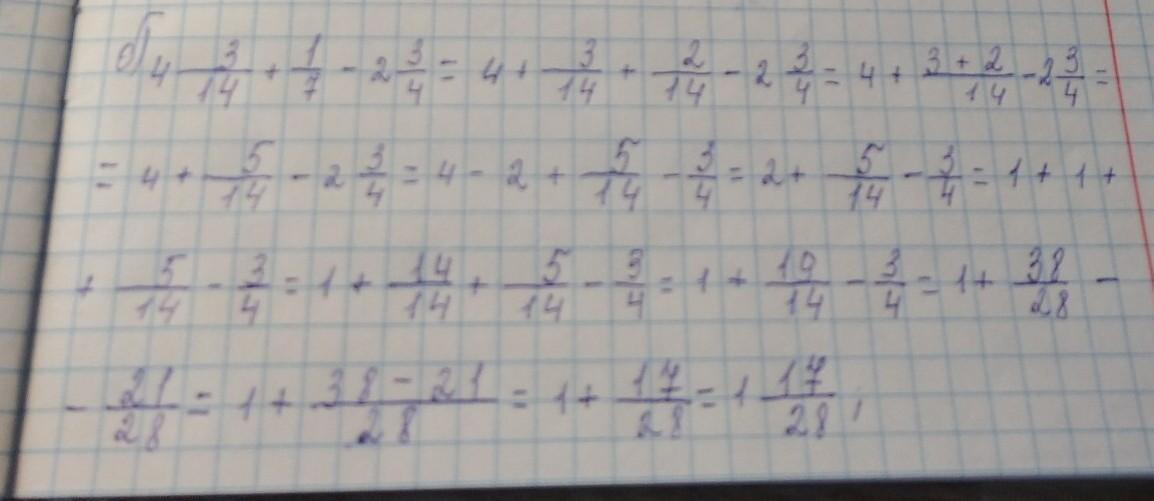 б) 4 3/14 + 1/7 - 2 3/4 = 4 + 3/14 + 2/14 - 2 3/4 = 4 + (3 + 2)/14 - 2 3/4 =
= 4 + 5/14 - 2 3/4 = 4 - 2 + 5/14 - 3/4 = 2 + 5/14 - 3/4 = 1 + 1 +
+ 5/14 - 3/4 = 1 + 14/14 + 5/14 - 3/4 = 1 + 19/14 - 3/4 = 1 + 38/28 -
- 21/28 = 1 + (38 - 21)/28 = 1 + 17/28 = 1 17/28 ;